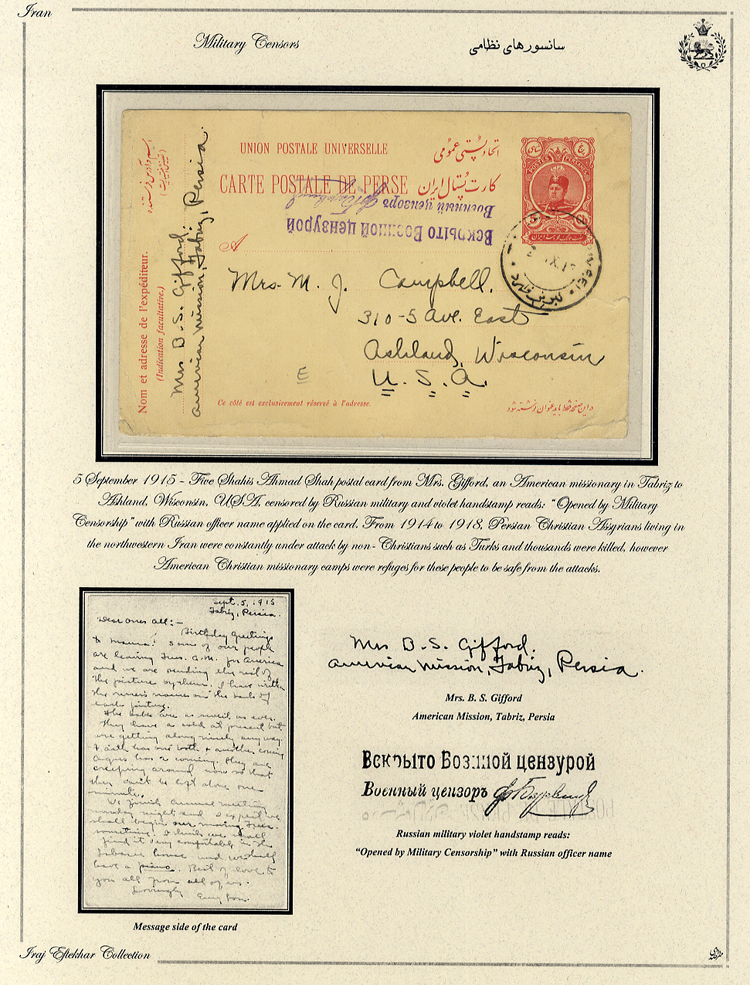 Iran
Military Censors
سانسورهای نظامی
UNION POSTALE UNIVERSELLE
اتحاد پستی عمومی
CARTE POSTALE DE PERSE
کارت پستال ایران
Вскрыто Военной цензурой
Военный цензоръ
A
Nom et adresse de l'expéditeur.
(Indication facultative.)
Mrs B. S. Gifford.
American Mission, Tabriz, Persia.
Mrs. M. J. Campbell.
310-5 Ave. East
Ashland, Wisconsin
U. S. A.
E
Ce côté est exclusivement réservé à l'adresse.
5 September 1915 - Five Shahis Ahmad Shah postal card from Mrs. Gifford, an American missionary in Tabriz to
Ashland, Wisconsin, USA, censored by Russian military and violet handstamp reads: "Opened by Military
Censorship" with Russian officer name applied on the card. From 1914 to 1918, Persian Christian Assyrians living in
the northwestern Iran were constantly under attack by non- Christians such as Turks and thousands were killed, however
American Christian missionary camps were refuges for these people to be safe from the attacks.
Sept. 5, 1915
Tabriz, Persia.
Dear ones all:-
Birthday greetings
to mama! Some of our people
are leaving for America
and we are sending the rest of
the pictures by them. I have written
the names on the back of
each picture.
The babes are as sweet as ever.
They have a cold at present but
are getting along nicely anyway.
has one tooth & another coming
coming. They are
creeping around now so that
they can't be left alone one
minute.
We finish annual meeting
Monday night and I expect we
shall begin our moving
sometime. I think we shall
find it very comfortable in the
house and we shall
have a piano. Best of love to
you all from all of us.
Lovingly,
Mrs B. S. Gifford.
American Mission, Tabriz, Persia.
Mrs. B. S. Gifford
American Mission, Tabriz, Persia
Вскрыто Военной цензурой
Военный цензоръ
Russian military violet handstamp reads:
"Opened by Military Censorship" with Russian officer name
Message side of the card
Iraj Eftekhar Collection